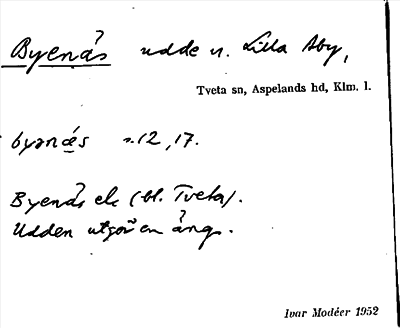 Byenäs udde v. Lilla Åby,
Tveta sn, Aspelands hd, Klm. l.
byənás 12, 17.
Byenäs ek (bl. Tveta).
Udden utgör en äng.
Ivar Modéer 1952